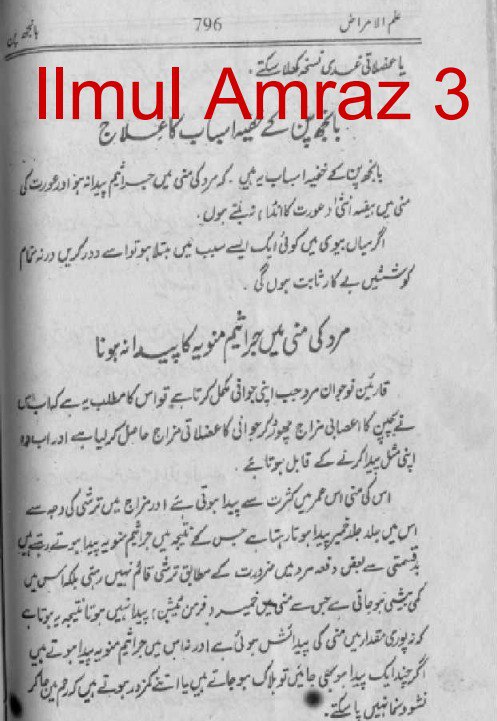 علم الامراض 796 بانجھ پن
یا عضلاتی غدی نسخہ کھلا سکتے .
Ilmul Amraz 3
بانجھ پن کے خفیہ اسباب کا علاج
بانجھ پن کے خفیہ اسباب یہ ہیں . کہ مرد کی منی میں جراثیم پیدا نہ ہو اور عورت کی
منی میں بیضہ انثیٰ / عورت کا انڈا / نہ بنتے ہوں .
اگر میاں بیوی میں کوئی ایک ایسے سبب میں مبتلا ہو تو اسے دور کریں ورنہ تمام
کوششیں بے کار ثابت ہوں گی .
مرد کی منی میں جراثیم منویہ کا پیدا نہ ہونا
قارئین نوجوان مرد جب اپنی جوانی مکمل کرتا ہے تو اس کا مطلب یہ ہے کہ اب اس
نے بچپن کا اعصابی مزاج چھوڑ کر جوانی کا عضلاتی مزاج حاصل کر لیا ہے اور اب وہ
اپنی مثل پیدا کرنے کے قابل ہوتا ہے .
اس کی منی اس عمر میں کثرت سے پیدا ہوتی ہے اور مزاج میں ترشی کی وجہ سے
اس میں جلد جلد خمیر پیدا ہوتا رہتا ہے جس کے نتیجہ میں جراثیم منویہ پیدا ہوتے رہتے ہیں
بدقسمتی سے بعض دفعہ مرد میں ضرورت کے مطابق ترشی قائم نہیں رہتی بلکہ اس میں
کمی بیشی ہو جاتی ہے جس سے منی میں خمیر (فرمن ٹیشن) پیدا نہیں ہوتا نتیجہ یہ ہوتا ہے
کہ نہ پوری مقدار میں منی کی پیدائش ہوتی ہے اور نہ اس میں جراثیم منویہ پیدا ہوتے ہیں
اگر چند ایک پیدا ہو بھی جائیں تو ہلاک ہو جاتے ہیں یا اتنے کمزور ہوتے ہیں کہ رحم میں جا کر
نشوونما نہیں پا سکتے .